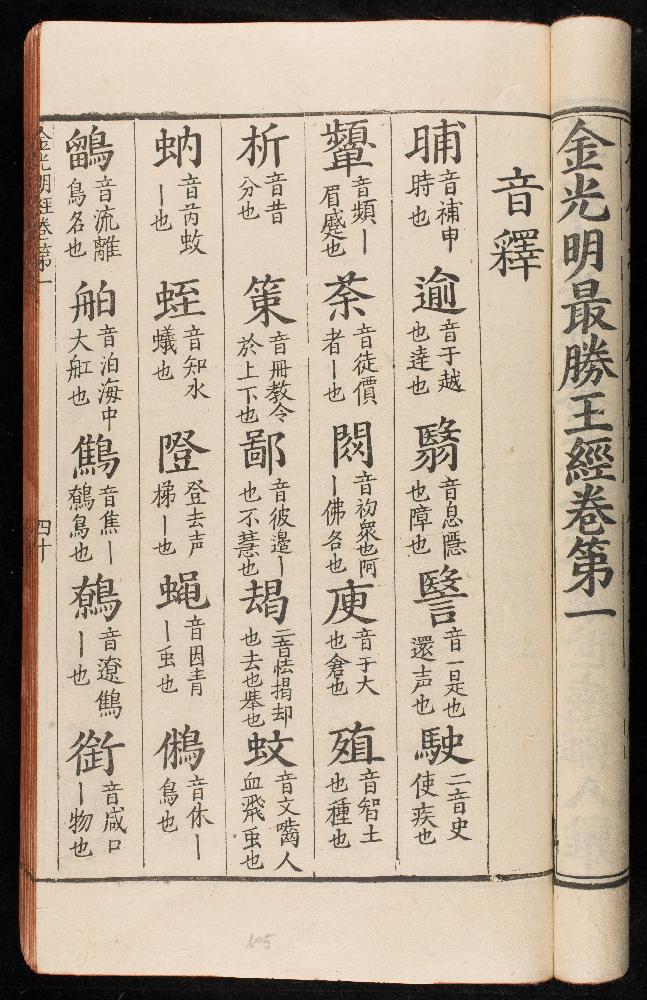 金光明最勝王經卷第一
音釋
晡 音補申時也 逾 音于越也逹也 翳 音息隱也障也 䃜 音一是也還声也 駛 二音史使疾也
顰 音頻丨眉蹙也 荼 音徒價者丨也 閦 音初衆也阿丨佛各也 庾 音于大也倉也 殖 音智土也種也
析 音昔分也 策 音冊教令於上下也 鄙 音彼邊丨也不慧也 朅 音怯揭却也去也舉也 蚊 音文嚙人血飛虫也
蚋 音芮蚊丨也 蛭 音知水蟻也 隥 登去声梯丨也 蝿 音因青丨虫也 鵂 音休丨鳥也
鶹 音流離鳥名也 舶 音泊海中大舡也 鷦 音焦丨鷯鳥也 鷯 音遼鷦丨也 銜 音咸口丨物也
金光明經卷第一
四十
105